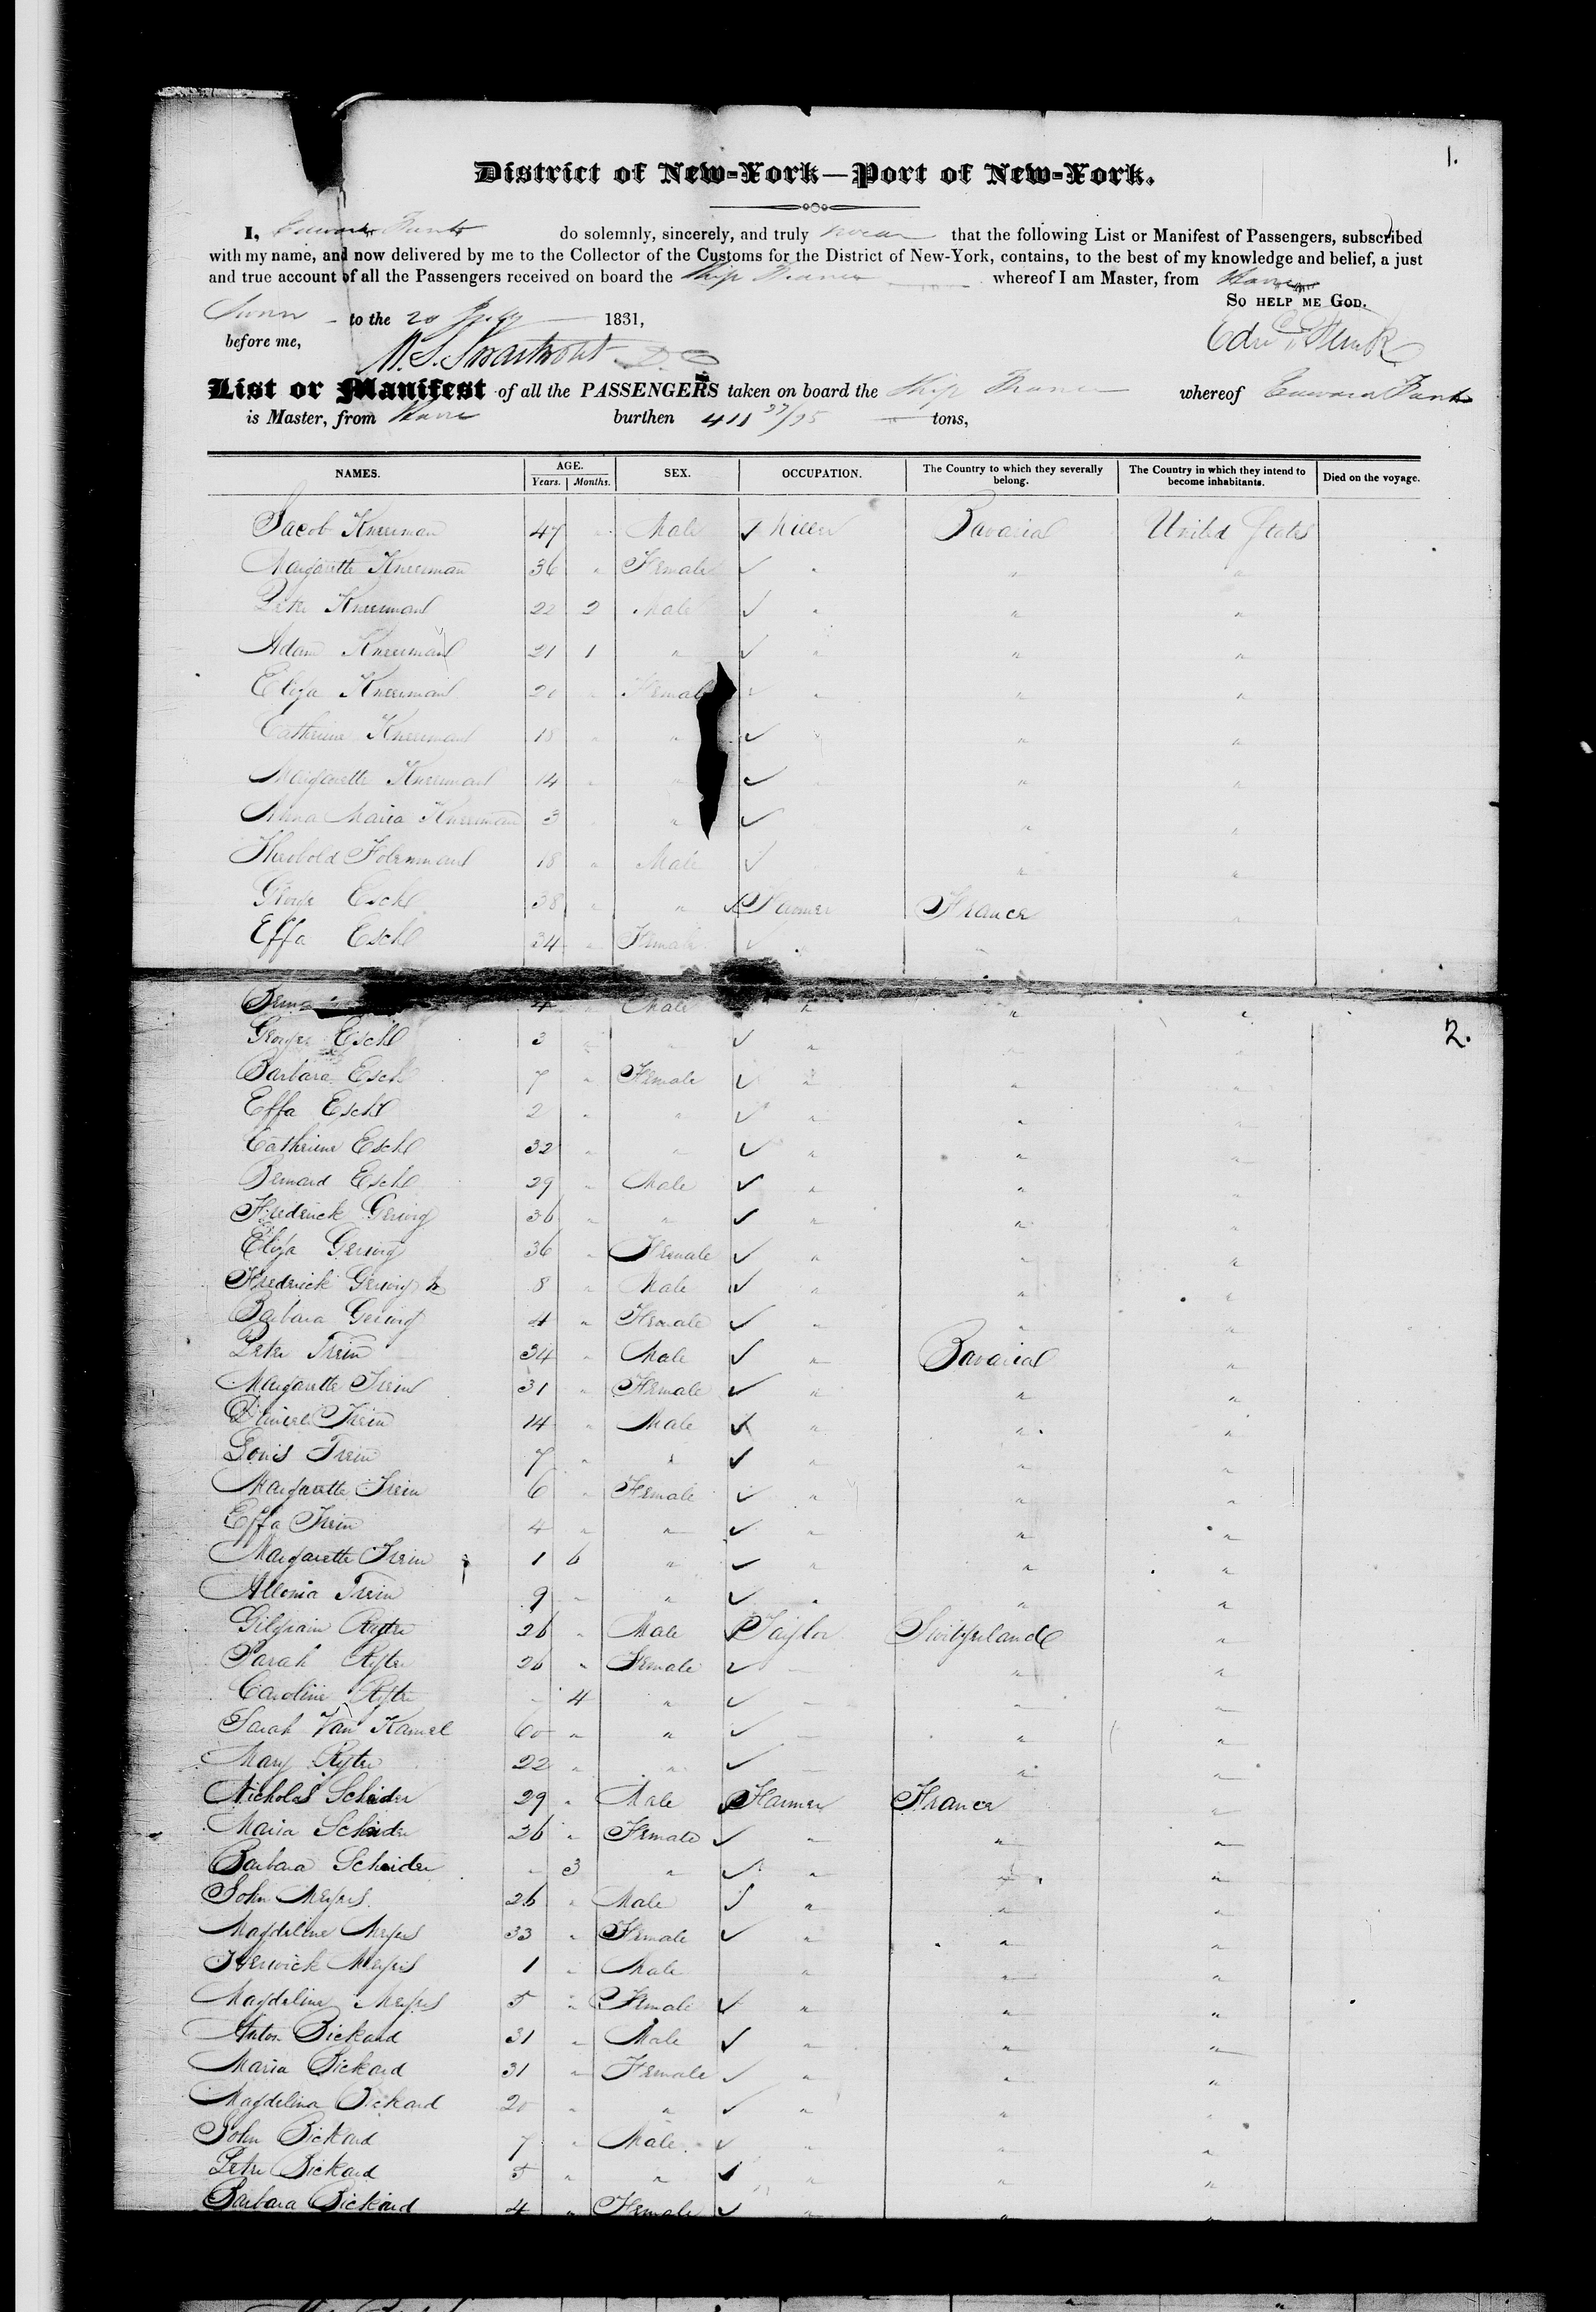 1.
District of New-York—Port of New-York.
I, Edward Funk do solemnly, sincerely, and truly swear that the following List or Manifest of Passengers, subscribed
with my name, and now delivered by me to the Collector of the Customs for the District of New-York, contains, to the best of my knowledge and belief, a just
and true account of all the Passengers received on board the Ship France whereof I am Master, from Havre
So help me God.
Sworn to the 20 July 1831,
before me, Edwd Funk
M. S. Swartwout D. C
List or Manifest of all the PASSENGERS taken on board the Ship France whereof Edward Funk
is Master, from Havre burthen 411 37/95 tons,
NAMES. AGE. SEX. OCCUPATION. The Country to which they severally belong. The Country in which they intend to become inhabitants. Died on the voyage.
Years. Months.
Jacob Kneeman 47 " Male ✓ Miller Bavaria United States
Margarette Kneeman 36 " Female ✓ " " "
Peter Kneeman 22 2 Male ✓ " " "
Adam Kneeman 21 1 " ✓ " " "
Eliza Kneeman 20 " Female ✓ " " "
Catherine Kneeman 18 " " ✓ " " "
Margarette Kneeman 14 " " ✓ " "
Anna Maria Kneeman 3 " " ✓ " "
Theobold 18 " Male ✓ " "
George Eschl 38 " " ✓ Farmer France "
Effa Eschl 34 " Female ✓ " "
4 " Male " " "
2.
George Eschl 3 " " ✓ " " "
Barbara Eschl 7 " Female ✓ " " "
Effa Eschl 2 " " ✓ " " "
Catherine Eschl 32 " " ✓ " " "
Bernard Eschl 29 " Male ✓ " " "
Frederick Gerwig 36 " " ✓ " " "
Eliza Gerwig 36 " Female ✓ " " "
Frederick Gerwig Jr 8 " Male ✓ " " "
Barbara Gerwig 4 " Female ✓ " " "
Peter Trein 34 " Male ✓ " Bavaria "
Margarette Trein 31 " Female ✓ " " "
Daniel Trein 14 " Male ✓ " " "
Louis Trein 7 " " ✓ " " "
Margarette Trein 6 " Female ✓ " " "
Effa Trein 4 " " ✓ " " "
Margarette Trein 1 6 " ✓ " " "
Allonia Trein 9 " " ✓ " " "
Ryter 26 " Male ✓ Taylor Switzerland "
Sarah Ryter 26 " Female ✓ " " "
Caroline Ryter - 4 " ✓ " " "
Sarah Van Kamel 60 " " ✓ " " "
Mary Ryter 22 " " ✓ " " "
Nicholas Schider 29 " Male ✓ Farmer France "
Maria Schider 26 " Female ✓ " " "
Barbara Schider - 3 " ✓ " " "
John Meyers 26 " Male ✓ " " "
Magdeline Meyers 33 " Female ✓ " " "
Meyers 1 " Male " " "
Magdeline Meyers 5 " Female ✓ " " "
Anton Bickard 31 " Male ✓ " " "
Maria Bickard 31 " Female ✓ " " "
Magdelina Bickard 20 " " ✓ " " "
John Bickard 7 " Male ✓ " " "
Peter Bickard 5 " " ✓ " " "
Barbara Bickard 4 " Female ✓ " " "